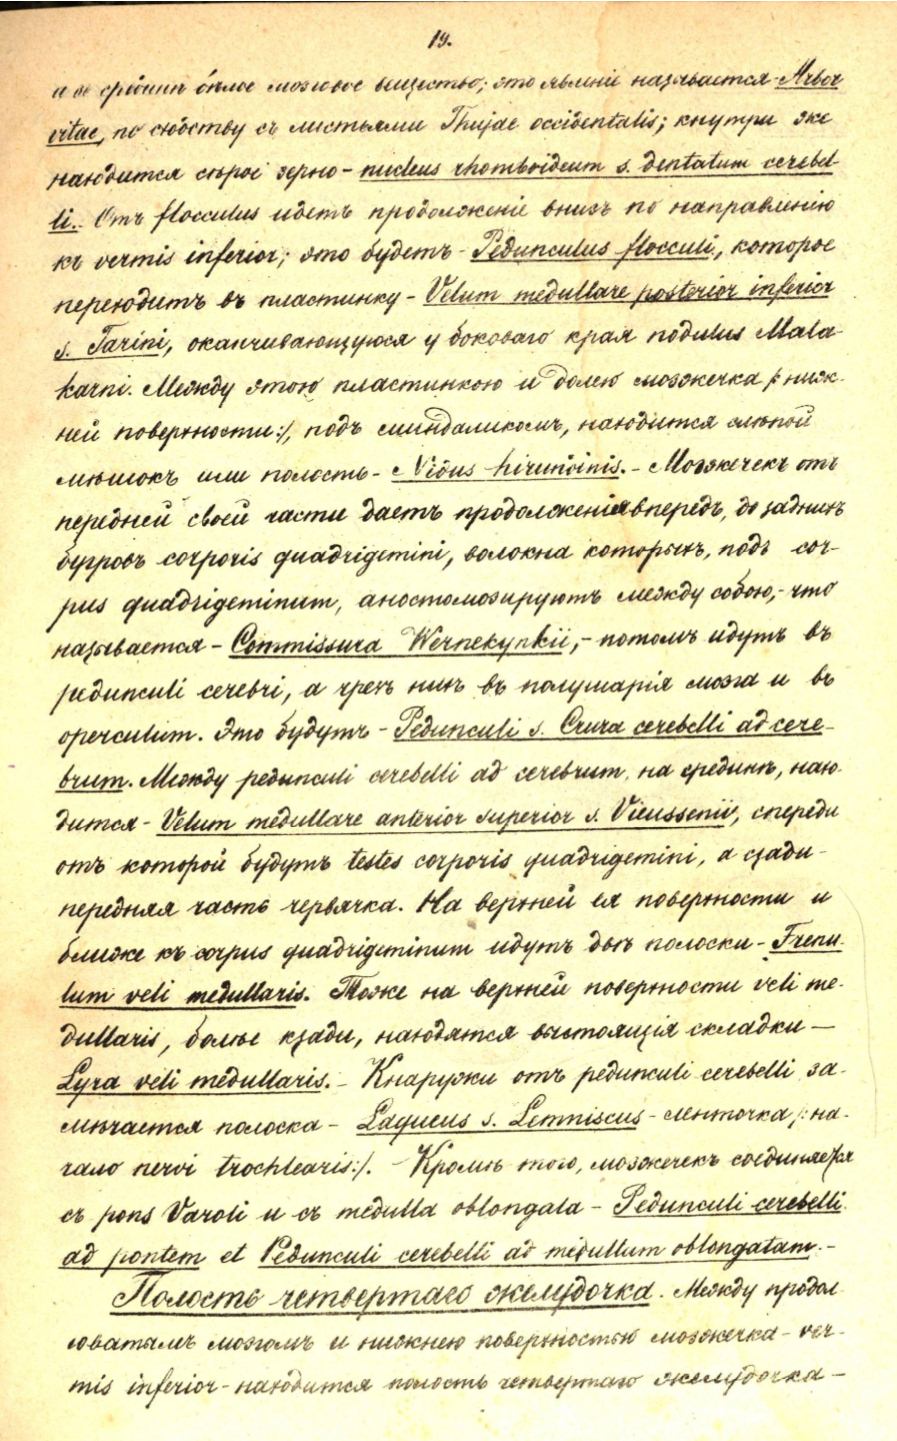 19.
а въ срединѣ бѣлое мозговое вещество; это явленіе называется - Arbor
vitae, по сходству съ листьями Thujae occidentalis; кнутри же
находится сѣрое зерно - nucleus rhomboideum s. dentatum cerebel-
li. Отъ flocculus идетъ продолженіе внизъ по направленію
къ vermis inferior; это будетъ - Pedunculus flocculi, которое
переходитъ въ пластинку - Velum medullare posterior inferior
s. Tarini, оканчивающуюся у боковаго края nodulus Mala-
karni. Между этою пластинкою и долею мозжечка /: ниж-
ней поверхности :/, подъ миндаликомъ, находится слѣпой
мѣшокъ или полость - Nidus hirundinis. - Мозжечекъ отъ
передней своей части даетъ продолженія впередъ, до заднихъ
бугровъ corporis quadrigemini, волокна которыхъ, подъ cor-
pus quadrigeminum, аностомозируютъ между собою, - что
называется - Commissura Wernekynkii, - потомъ идутъ въ
pedunculi cerebri, а чрезъ нихъ въ полушарія мозга и въ
operculum. Это будутъ - Pedunculi s. Crura cerebelli ad cere-
brum. Между pedunculi cerebelli ad cerebrum, на срединѣ, нахо-
дится - Velum medullare anterior superior s. Vieussenii, спереди
отъ которой будутъ testes corporis quadrigemini, а сзади -
передняя часть червячка. На верхней ея поверхности и
ближе къ corpus quadrigeminum идутъ двѣ полоски - Frenu-
lum veli medullaris. Тоже на верхней поверхности veli me-
dullaris, болѣе кзади, находятся выстоящія складки —
Lyra veli medullaris. - Кнаружи отъ pedunculi cerebelli за-
мѣчается полоска - Laqueus s. Lemniscus - ленточка /: на-
чало nervi trochlearis :/. - Кромѣ того, мозжечекъ соединяется
съ pons Varoli и съ medulla oblongata - Pedunculi cerebelli
ad pontem et Pedunculi cerebelli ad medullam oblongatam. -
Полость четвертаго желудочка. Между продол-
говатымъ мозгомъ и нижнею поверхностью мозжечка - ver-
mis inferior - находится полость четвертаго желудочка -